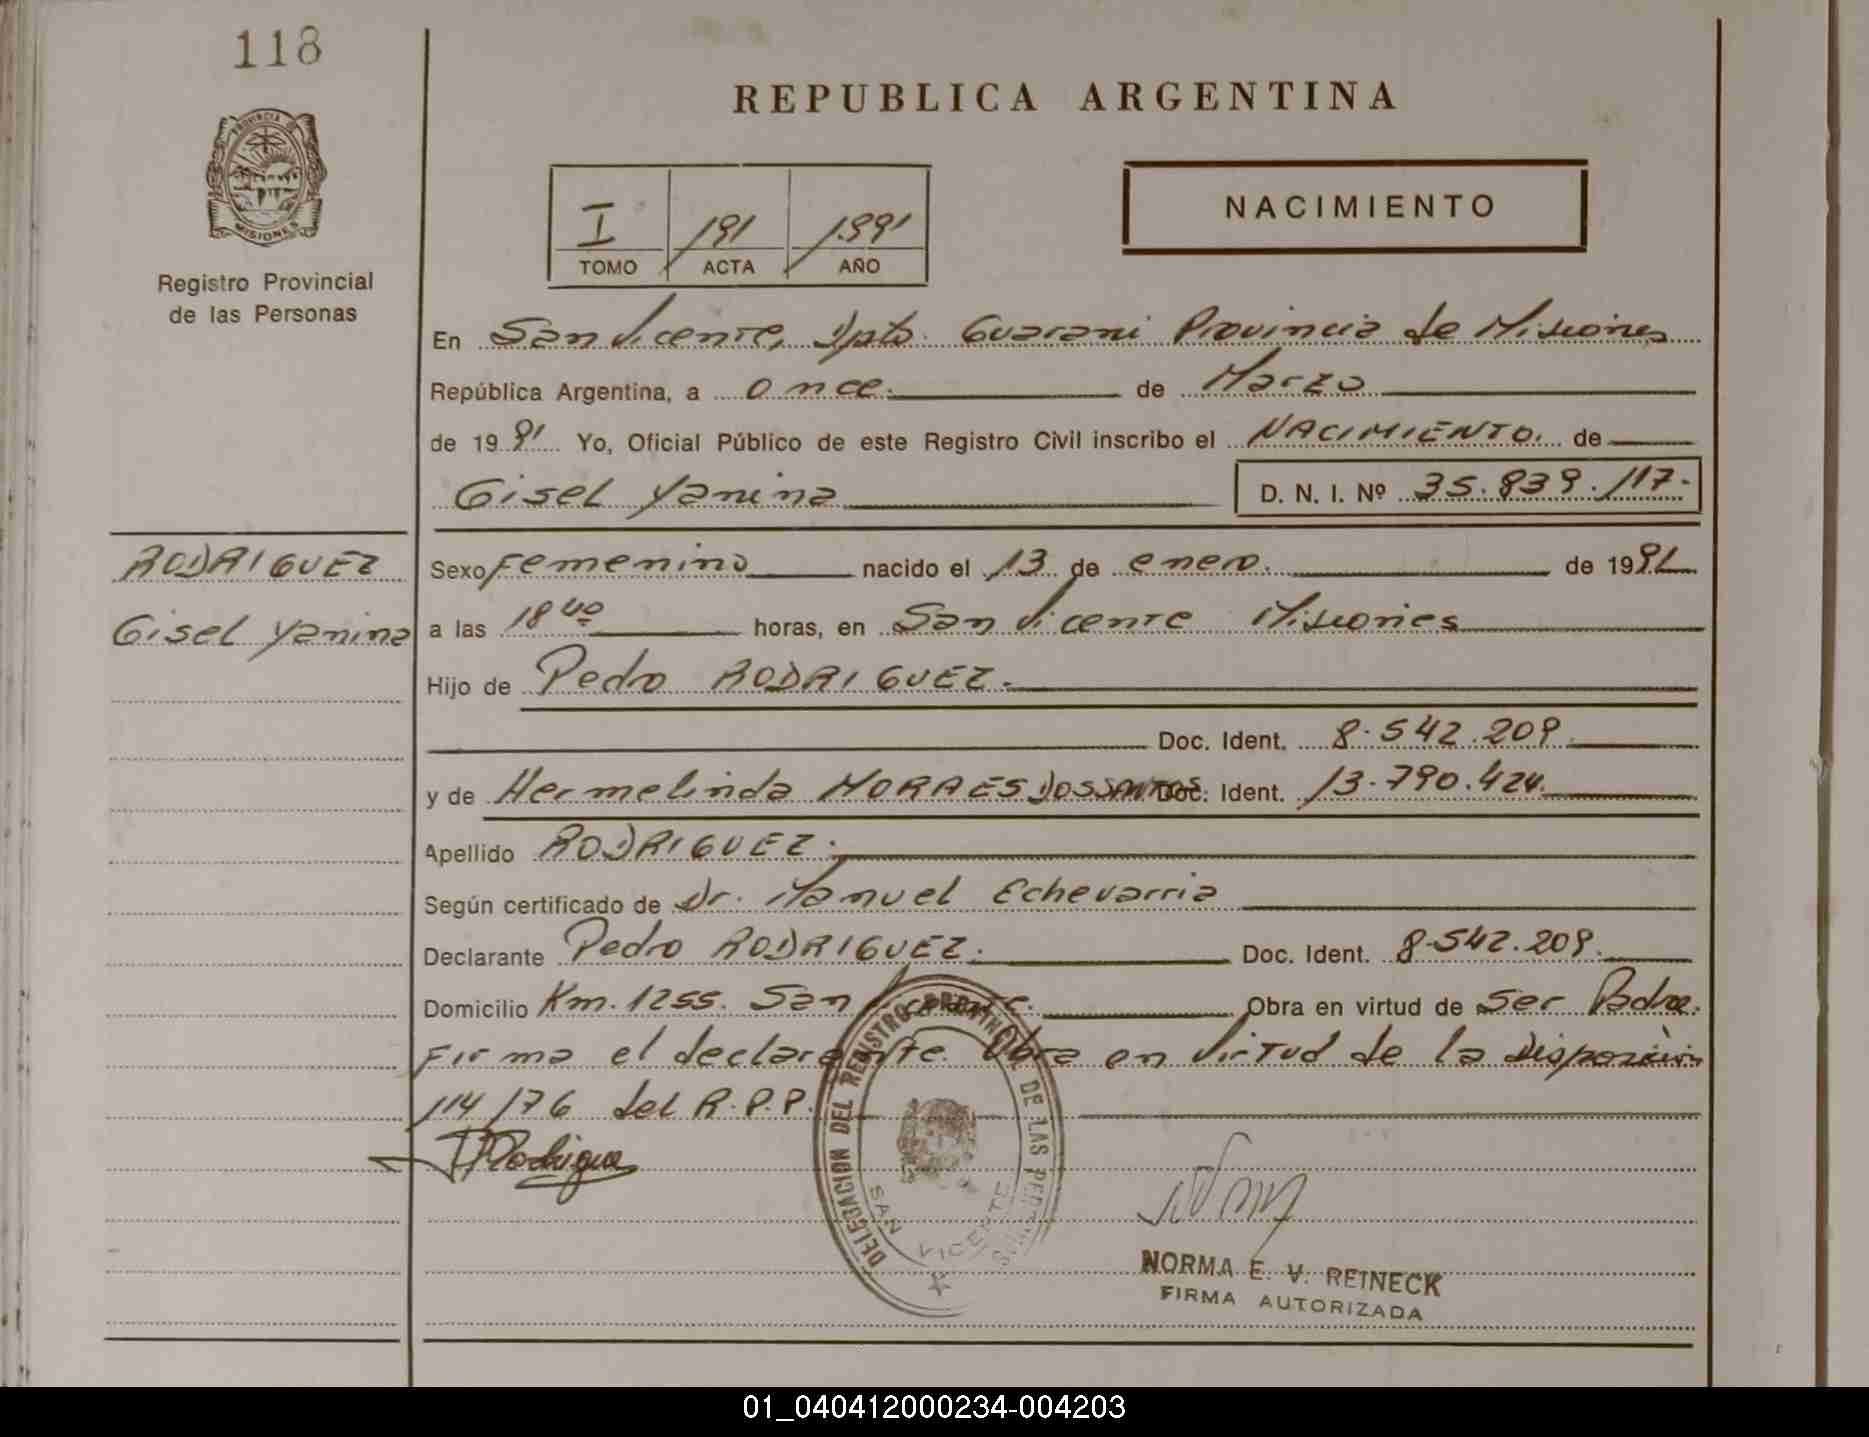 118
REPUBLICA ARGENTINA
PROVINCIA DE
MISIONES
Registro Provincial
de las Personas
I 191 1991
TOMO ACTA AÑO
NACIMIENTO
En San Vicente, Dpto. Guarani Provincia de Misiones
República Argentina, a once. de Marzo
de 1991 Yo, Oficial Público de este Registro Civil inscribo el NACIMIENTO. de
Gisel Yanina D. N. I. Nº 35.839.117.
RODRIGUEZ
Gisel Yanina
Sexo Femenino nacido el 13 de enero. de 1991
a las 18 40 horas, en San Vicente Misiones
Hijo de Pedro RODRIGUEZ.
Doc. Ident. 8.542.209
y de Hermelinda MORAES DOSSANTOS Doc. Ident. 13.790.424.
Apellido RODRIGUEZ.
Según certificado de Dr. Manuel Echevarria
Declarante Pedro RODRIGUEZ. Doc. Ident. 8.542.209.
Domicilio Km. 1255. San Vicente. Obra en virtud de Ser Padre.
Firma el declarante. Obra en virtud de la Disposición
114/76 del R.P.P.
PRodriguez
DELEGACION DEL REGISTRO PROVINCIAL DE LAS PERSONAS
SAN VICENTE
NORMA E. V. REINECK
FIRMA AUTORIZADA
01_040412000234-004203